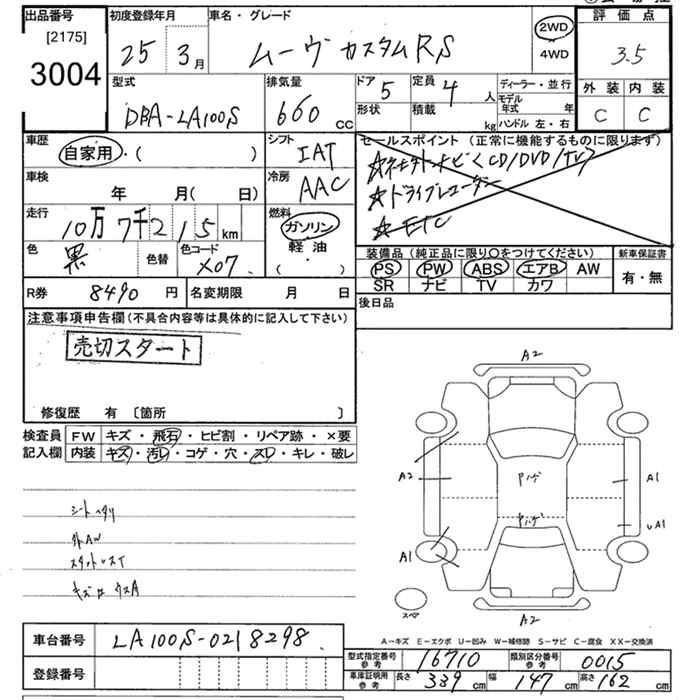 出品番号 初度登録年月 車名・グレード 評価点
[2175]
3004
25 3月 ムーヴ カスタムRS 2WD 3.5
4WD
外装 内装
C C
型式 排気量 ドア 5 定員 4人 ディーラー・並行
DBA-LA100S 660cc 形状 積載 kg モデル年式 年
ハンドル 左・右
車歴 シフト セールスポイント (正常に機能するものに限ります)
自家用・( ) IAT
CD/DVD/TV
車検 冷房 ☆ドライブレコーダー
年 月( 日) AAC ☆ETC
走行 燃料
10万7千215km ガソリン
色 色替 色コード 軽油
黒 X07 ( )
装備品 (純正品に限り○をつけてください) 新車保証書
PS PW ABS エアB AW 有・無
SR ナビ TV カワ
R券 8490円 名変期限 月 日 後日品
注意事項申告欄(不具合内容等は具体的に記入して下さい)
売切スタート
修復歴 有 〔箇所 〕
検査員 FW キズ・飛石・ヒビ割・リペア跡・×要
記入欄 内装 キズ・汚レ・コゲ・穴・スレ・キレ・破レ
シートヘタリ
外AW
A2
A2 A1
A1 A1
スペア
A2
A-キズ E-エクボ U-凹み W-補修跡 S-サビ C-腐食 XX-交換済
車台番号 LA100S-0218298
登録番号
型式指定番号 参考 16710 類別区分番号 参考 0015
車庫証明用 参考 長さ 339cm 幅 147cm 高さ 162cm